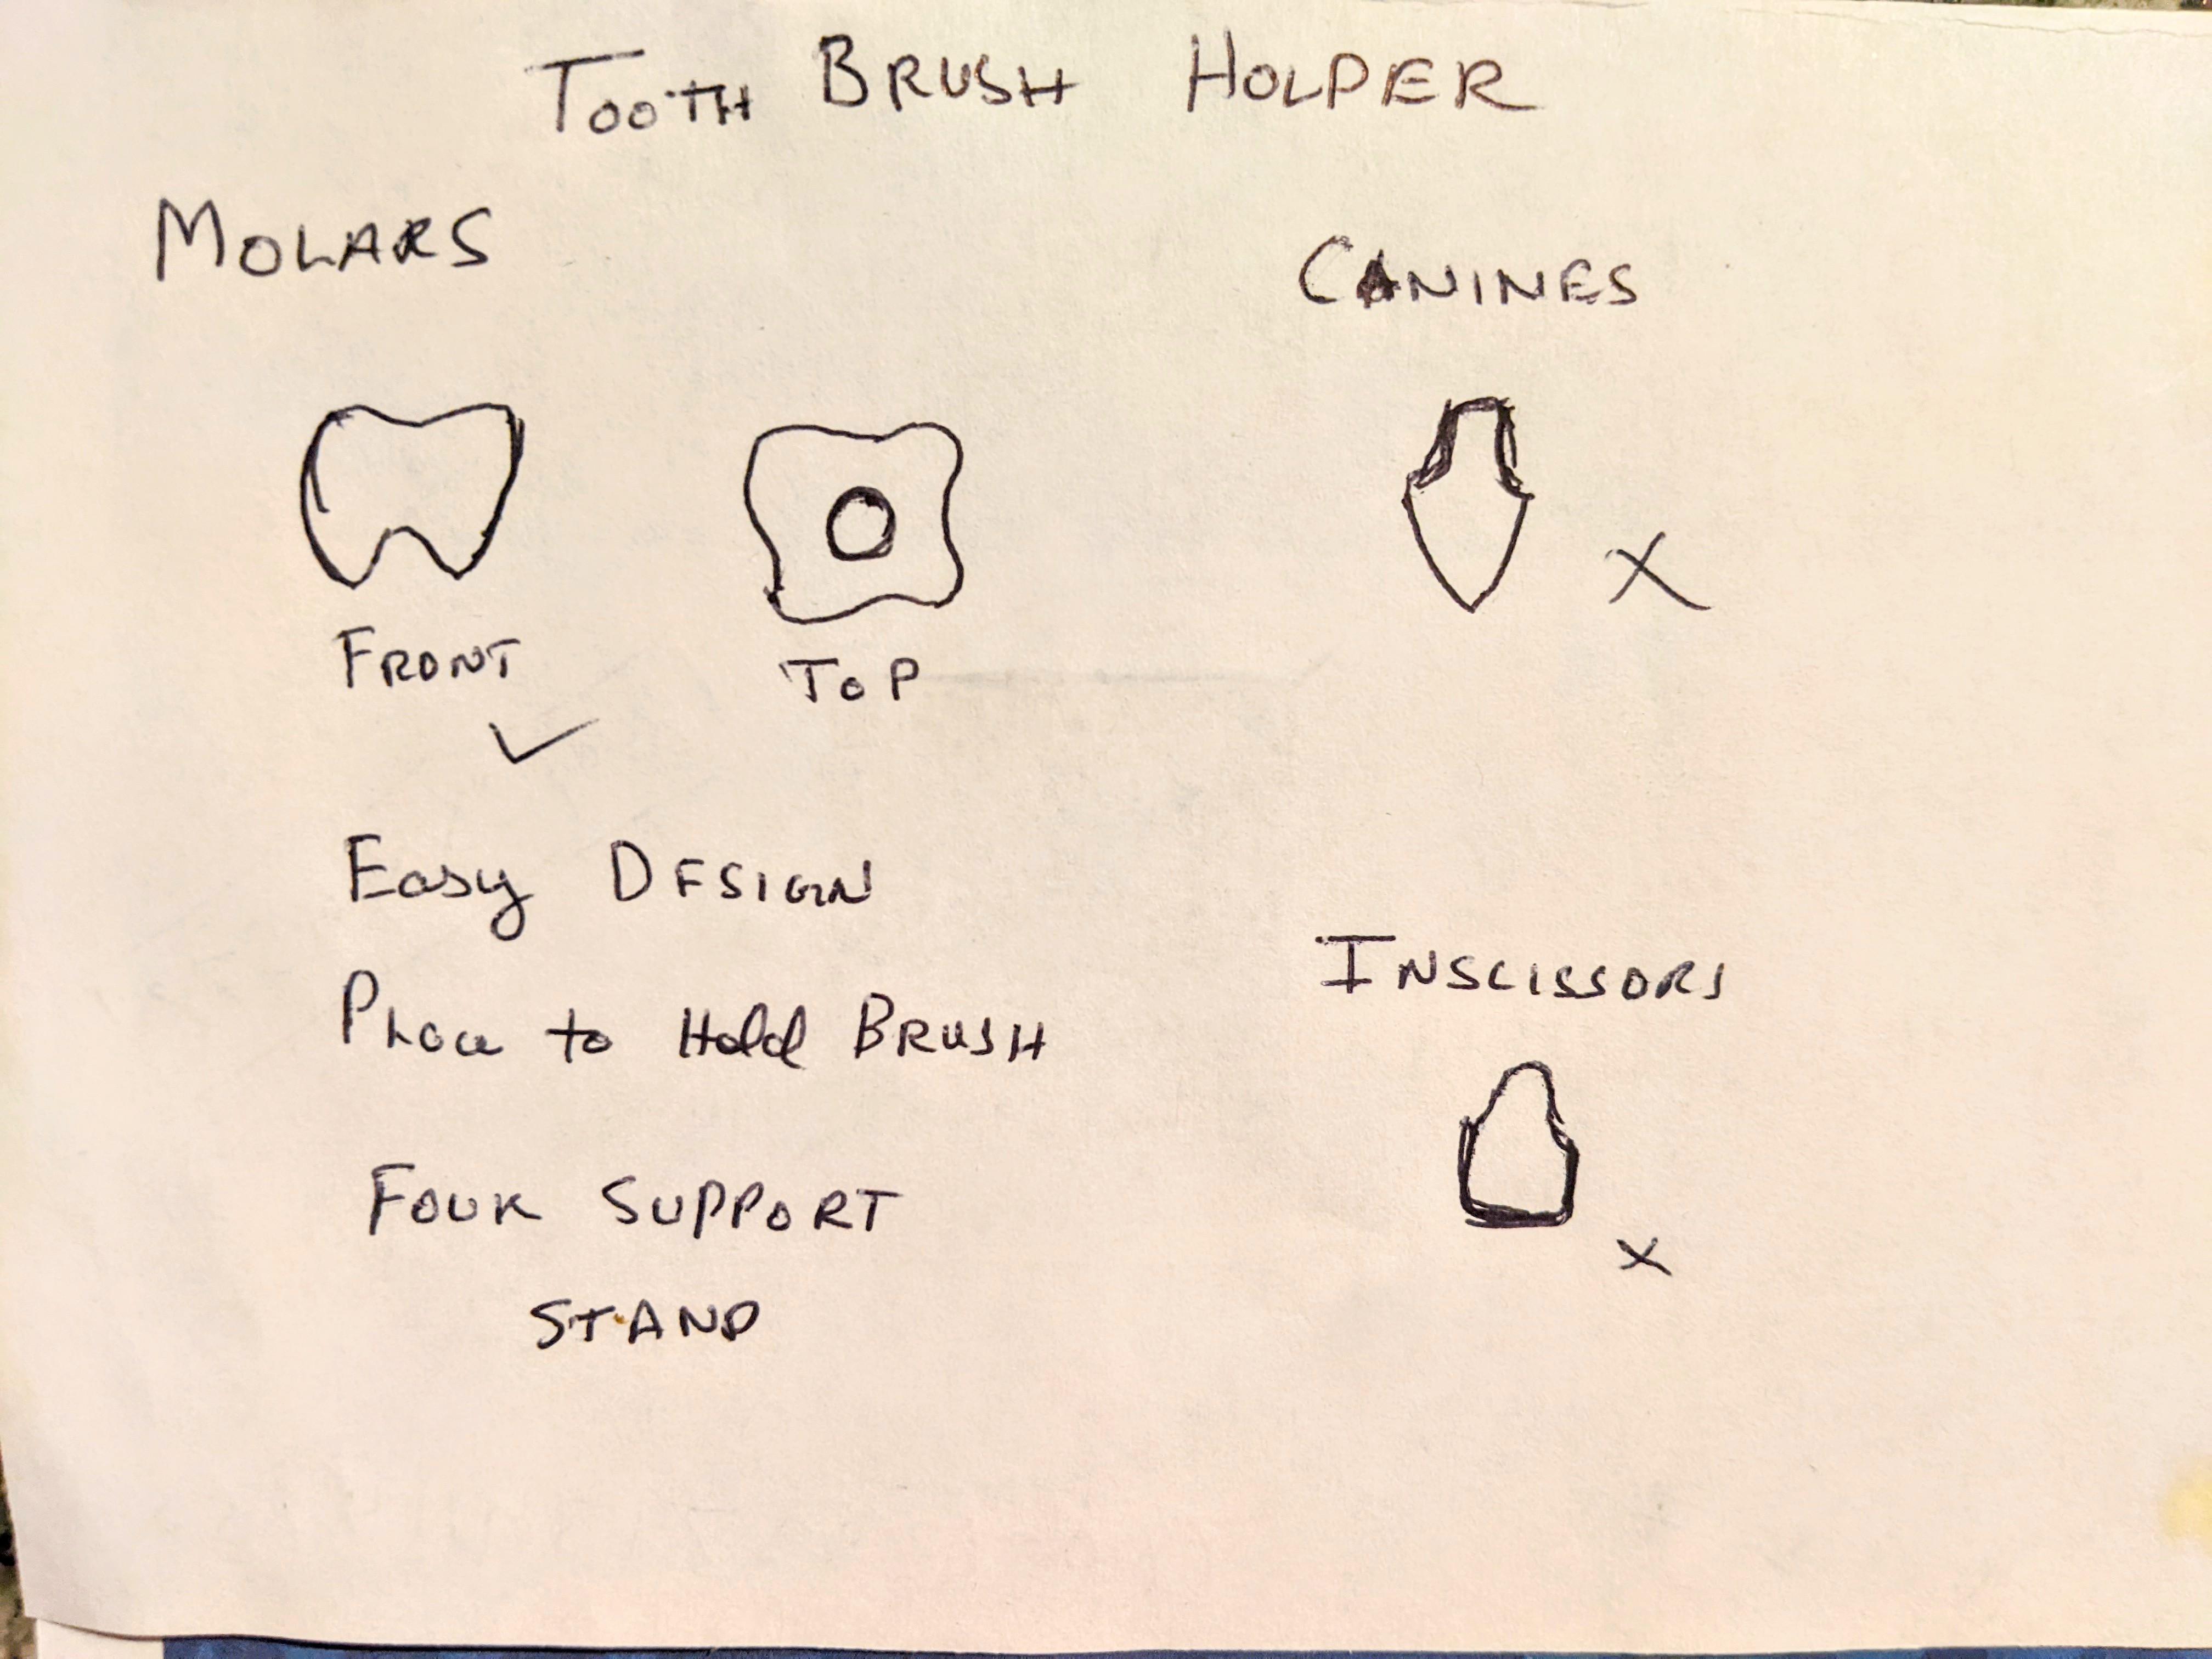 TOOTH BRUSH HOLDER
MOLARS
CANINES
FRONT
TOP
X
EASY DESIGN
PLACE to Hold BRUSH
INSCISSORS
FOUR SUPPORT
STAND
X